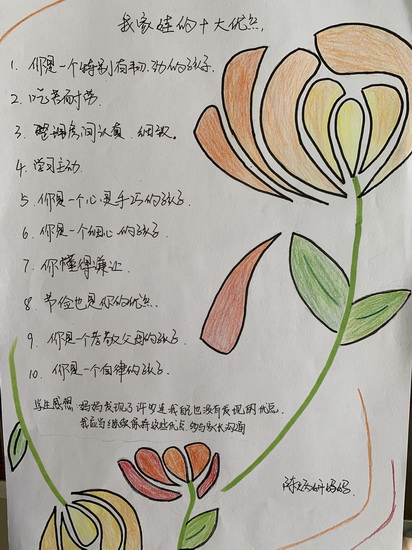 我家娃的十大优点.
1. 你是一个特别有韧劲的孩子.
2. 吃苦耐劳.
3. 整理房间认真、细致.
4. 学习主动.
5. 你是一个心灵手巧的孩子
6. 你是一个细心的孩子
7. 你懂得谦让
8. 节俭也是你的优点.
9. 你是一个孝敬父母的孩子
10. 你是一个自律的孩子.
学生感想: 妈妈发现了许多连我自己也没有发现的优点.
我应当继续保持这些优点 多与家长沟通
妈妈.